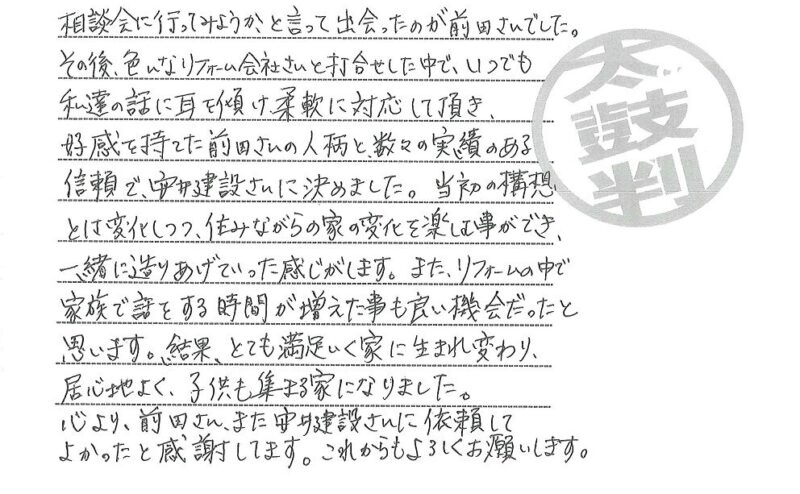 相談会に行ってみようか、と言って出会ったのが前田さんでした。
その後、色んなリフォーム会社さんと打合せした中で、いつでも
私達の話に耳を傾け、柔軟に対応して頂き、
好感を持てた前田さんの人柄と、数々の実績のある
信頼で、安井建設さんに決めました。当初の構想
とは変化しつつ、住みながらの家の変化を楽しむ事ができ、
一緒に造りあげていった感じがします。また、リフォームの中で
家族で話をする時間が増えた事も良い機会だったと
思います。結果、とても満足いく家に生まれ変わり、
居心地よく、子供も集まる家になりました。
心より、前田さん、また安井建設さんに依頼して
よかったと感謝してます。これからもよろしくお願いします。
太鼓判